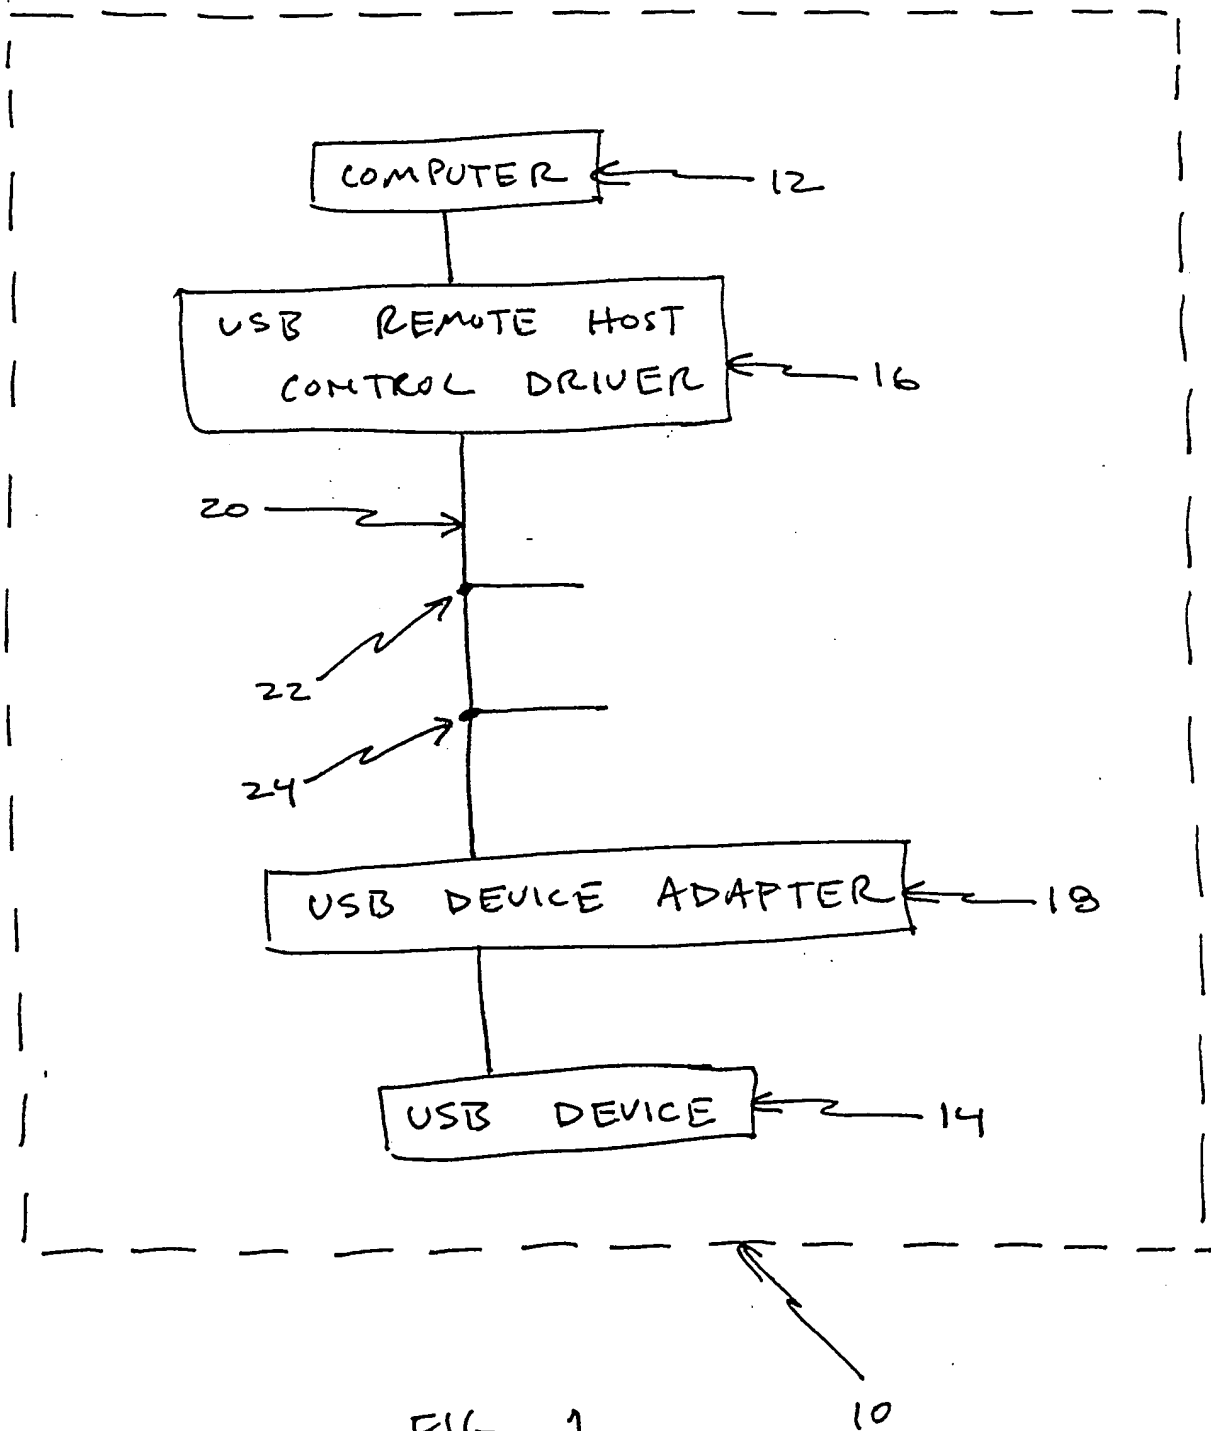 COMPUTER
12
USB REMOTE HOST
CONTROL DRIVER
16
20
22
24
USB DEVICE ADAPTER
18
USB DEVICE
14
10
FIG 1